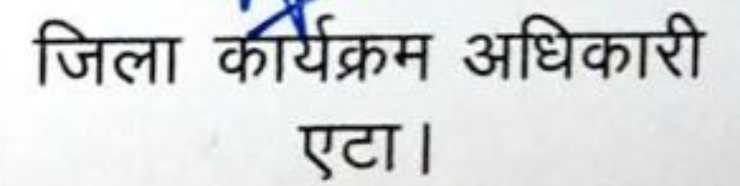 जिला कार्यक्रम अधिकारी
एटा।